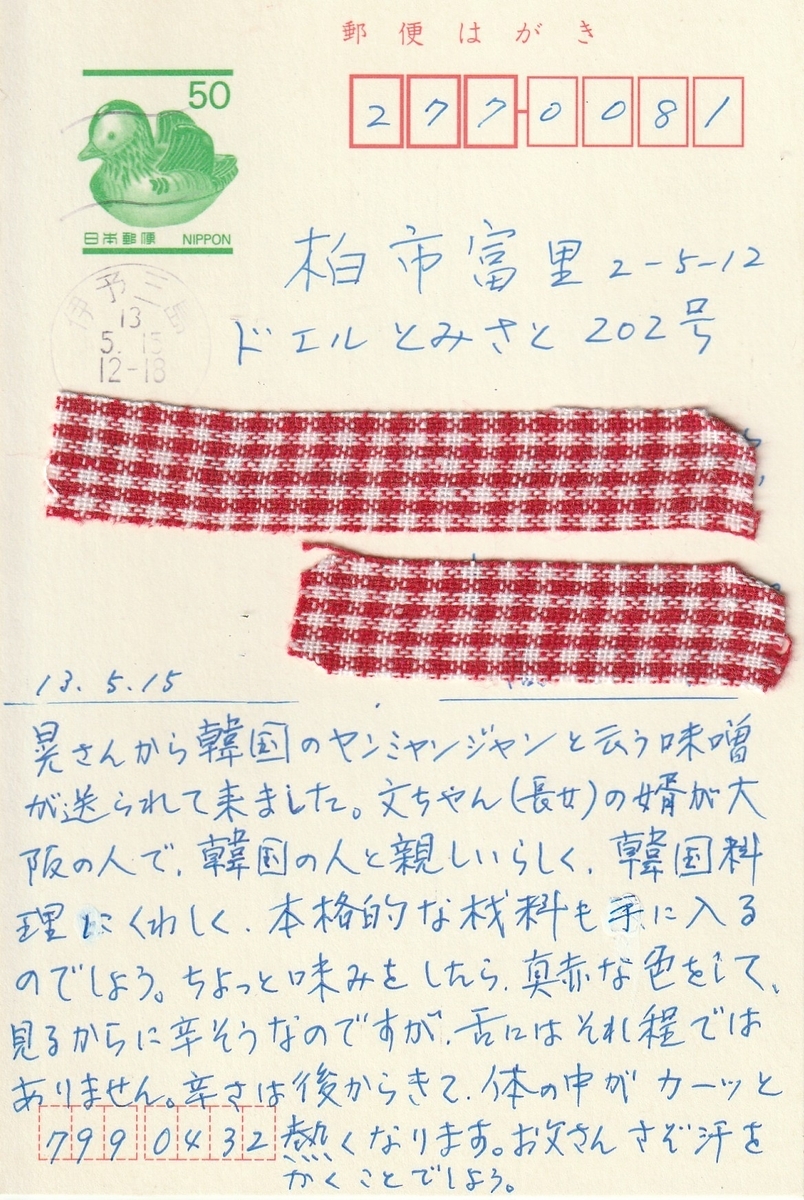 郵便はがき
50
277-0081
日本郵便 NIPPON
柏市富里2-5-12
ドエルとみさと202号
伊予三島
13
5.15
12-18
13.5.15
晃さんから韓国のヤンニャンジャンと云う味噌
が送られて来ました。文ちゃん(長女)の婿が大
阪の人で、韓国の人と親しいらしく、韓国料
理にくわしく、本格的な材料も手に入る
のでしょう。ちょっと味みをしたら、真赤な色をして、
見るからに辛そうなのですが、舌にはそれ程では
ありません。辛さは後からきて、体の中がカーッと
熱くなります。お父さんさぞ汗を
かくことでしょう。
7990432